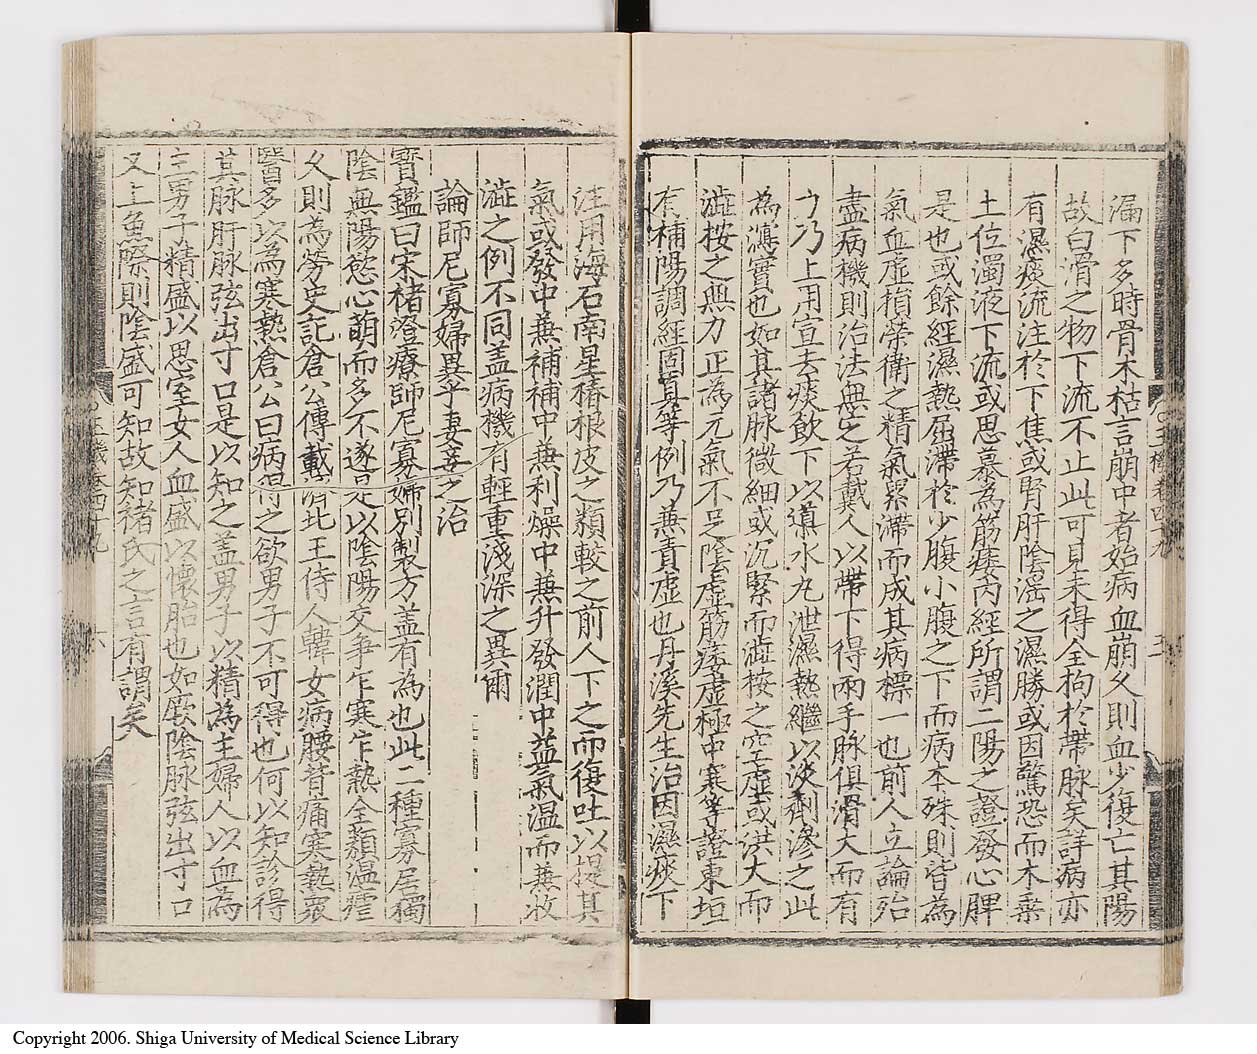 漏下多時骨木枯言崩中者始病血崩久則血少復亡其陽
故白滑之物下流不止此可見未得全拘於帶脉矣詳病亦
有濕痰流注於下焦或腎肝陰滛之濕勝或因驚恐而木乗
土位濁液下流或思慕為筋痿内經所謂二陽之證發心脾
是也或餘經濕熱屈滯於少腹小腹之下而病本殊則皆為
氣血虛損榮衛之精氣累滯而成其病標一也前人立論殆
盡病機則治法無乏若戴人以帶下得兩手脉俱滑大而有
力乃上用宣去痰飲下以導水丸泄濕熱繼以淡劑滲之此
為瀉實也如其諸脉微細或沉緊而澁按之空虛或洪大而
澁按之無力正為元氣不足陰虛筋痿虛極中寒等證東垣
有補陽調經固真等例乃兼責虛也丹溪先生治因濕痰下
注用海石南星椿根皮之類較之前人下之而復吐以提其
氣或發中兼補補中兼利燥中兼升發潤中益氣温而兼收
澁之例不同盖病機有輕重淺深之異爾
論師尼寡婦異乎妻妾之治
寳鑑曰宋褚澄療師尼寡婦別製方盖有為也此二種寡居獨
陰無陽慾心萌而多不遂是以陰陽交爭乍寒乍熱全類温瘧
久則為勞史記倉公傳載濟北王侍人韓女病腰背痛寒熱衆
醫多以為寒熱倉公曰病得之欲男子不可得也何以知診得
其脉肝脉弦出寸口是以知之盖男子以精為主婦人以血為
主男子精盛以思室女人血盛以懷胎也如厥陰脉弦出寸口
又上魚際則陰盛可知故知褚氏之言有謂矣